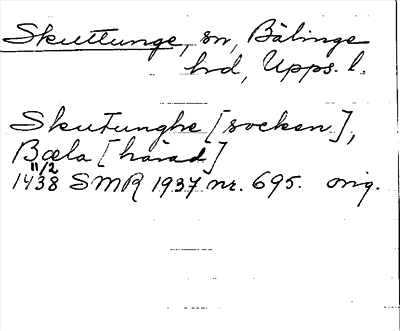 Skuttunge, sn, Bälinge
hd, Upps. l.
Skutunghe [socken],
Bæla [härad]
11/2
1438 SMR 1937 nr. 695. orig.